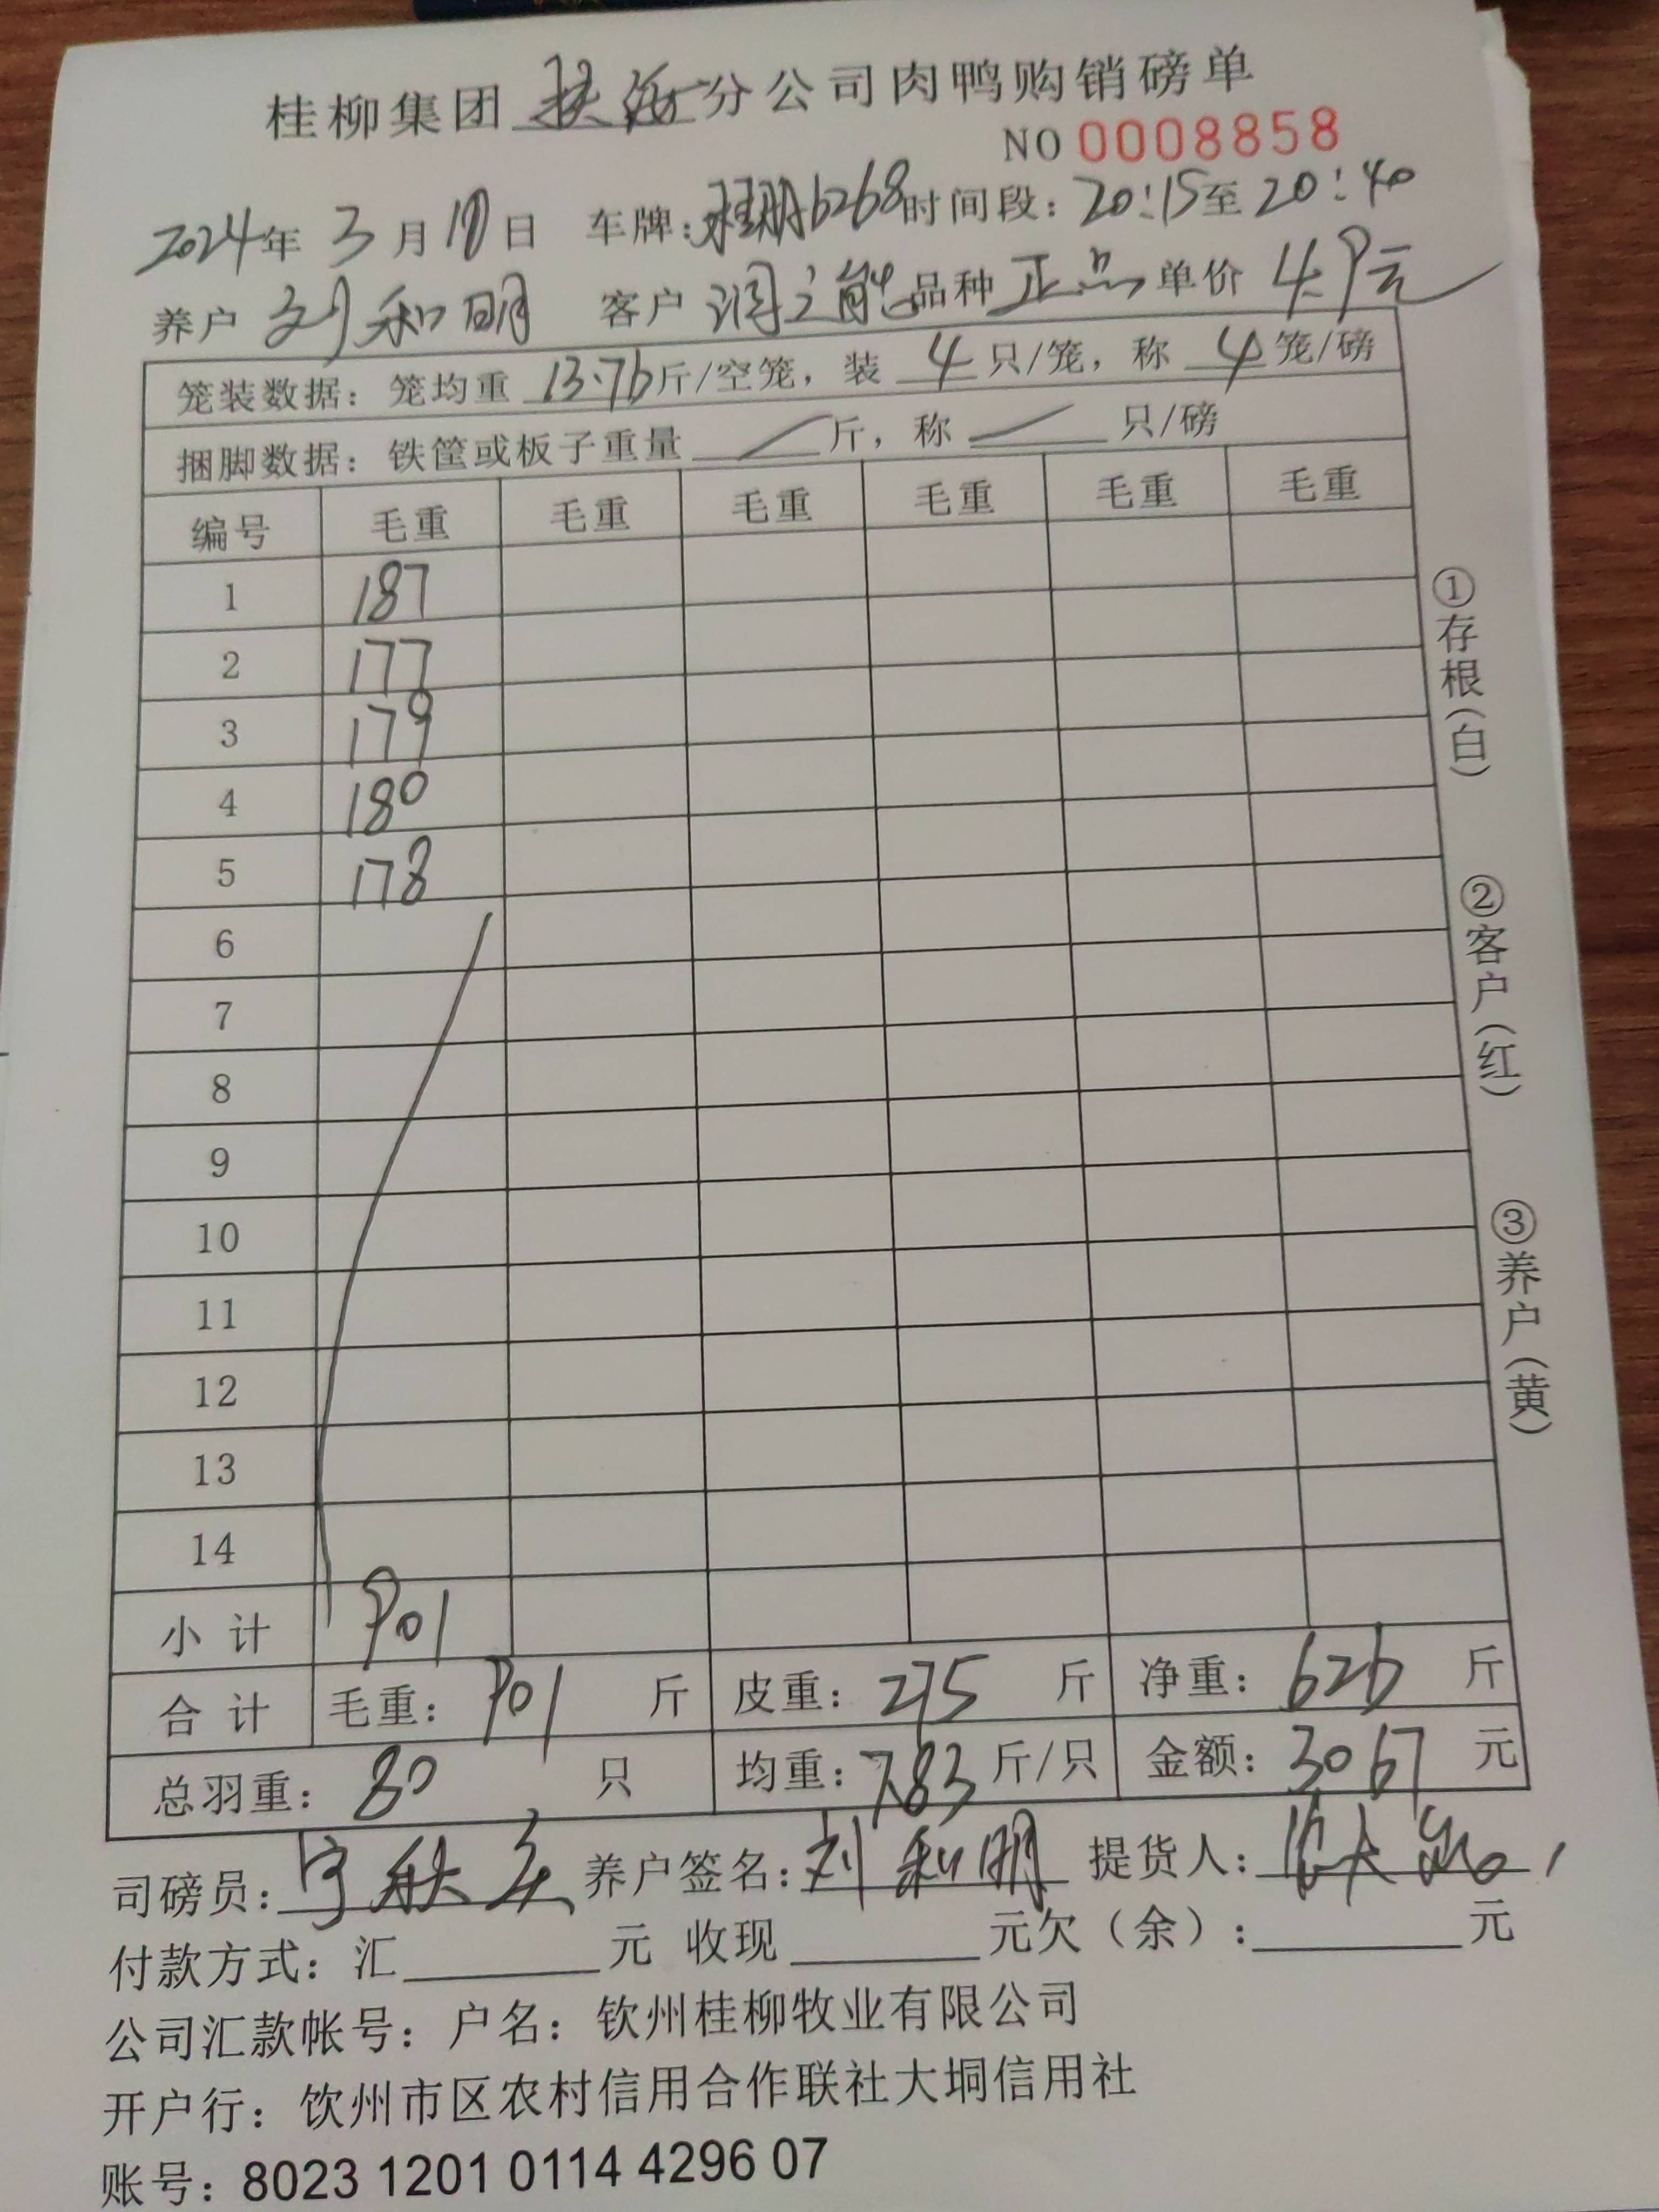 桂柳集团 分公司肉鸭购销磅单
NO 0008858
2024年 3月 日 车牌: 6268 时间段: 20:15至20:40
养户 刘和明 客户 润之能 品种 正品 单价 4.9元
笼装数据: 笼均重 13.76斤/空笼, 装 4 只/笼, 称 4 笼/磅
捆脚数据: 铁筐或板子重量 斤, 称 只/磅
编号 毛重 毛重 毛重 毛重 毛重 毛重
1 187
2 177
3 179
4 180
5 178
6
7
8
9
10
11
12
13
14
小计 901
合计 毛重: 901 斤 皮重: 275 斤 净重: 626 斤
总羽重: 80 只 均重: 7.83 斤/只 金额: 3067 元
司磅员: 养户签名: 刘和明 提货人:
付款方式: 汇 元 收现 元欠（余）: 元
公司汇款帐号: 户名: 钦州桂柳牧业有限公司
开户行: 饮州市区农村信用合作联社大垌信用社
账号: 8023 1201 0114 4296 07
①存根(白)
②客户(红)
③养户(黄)